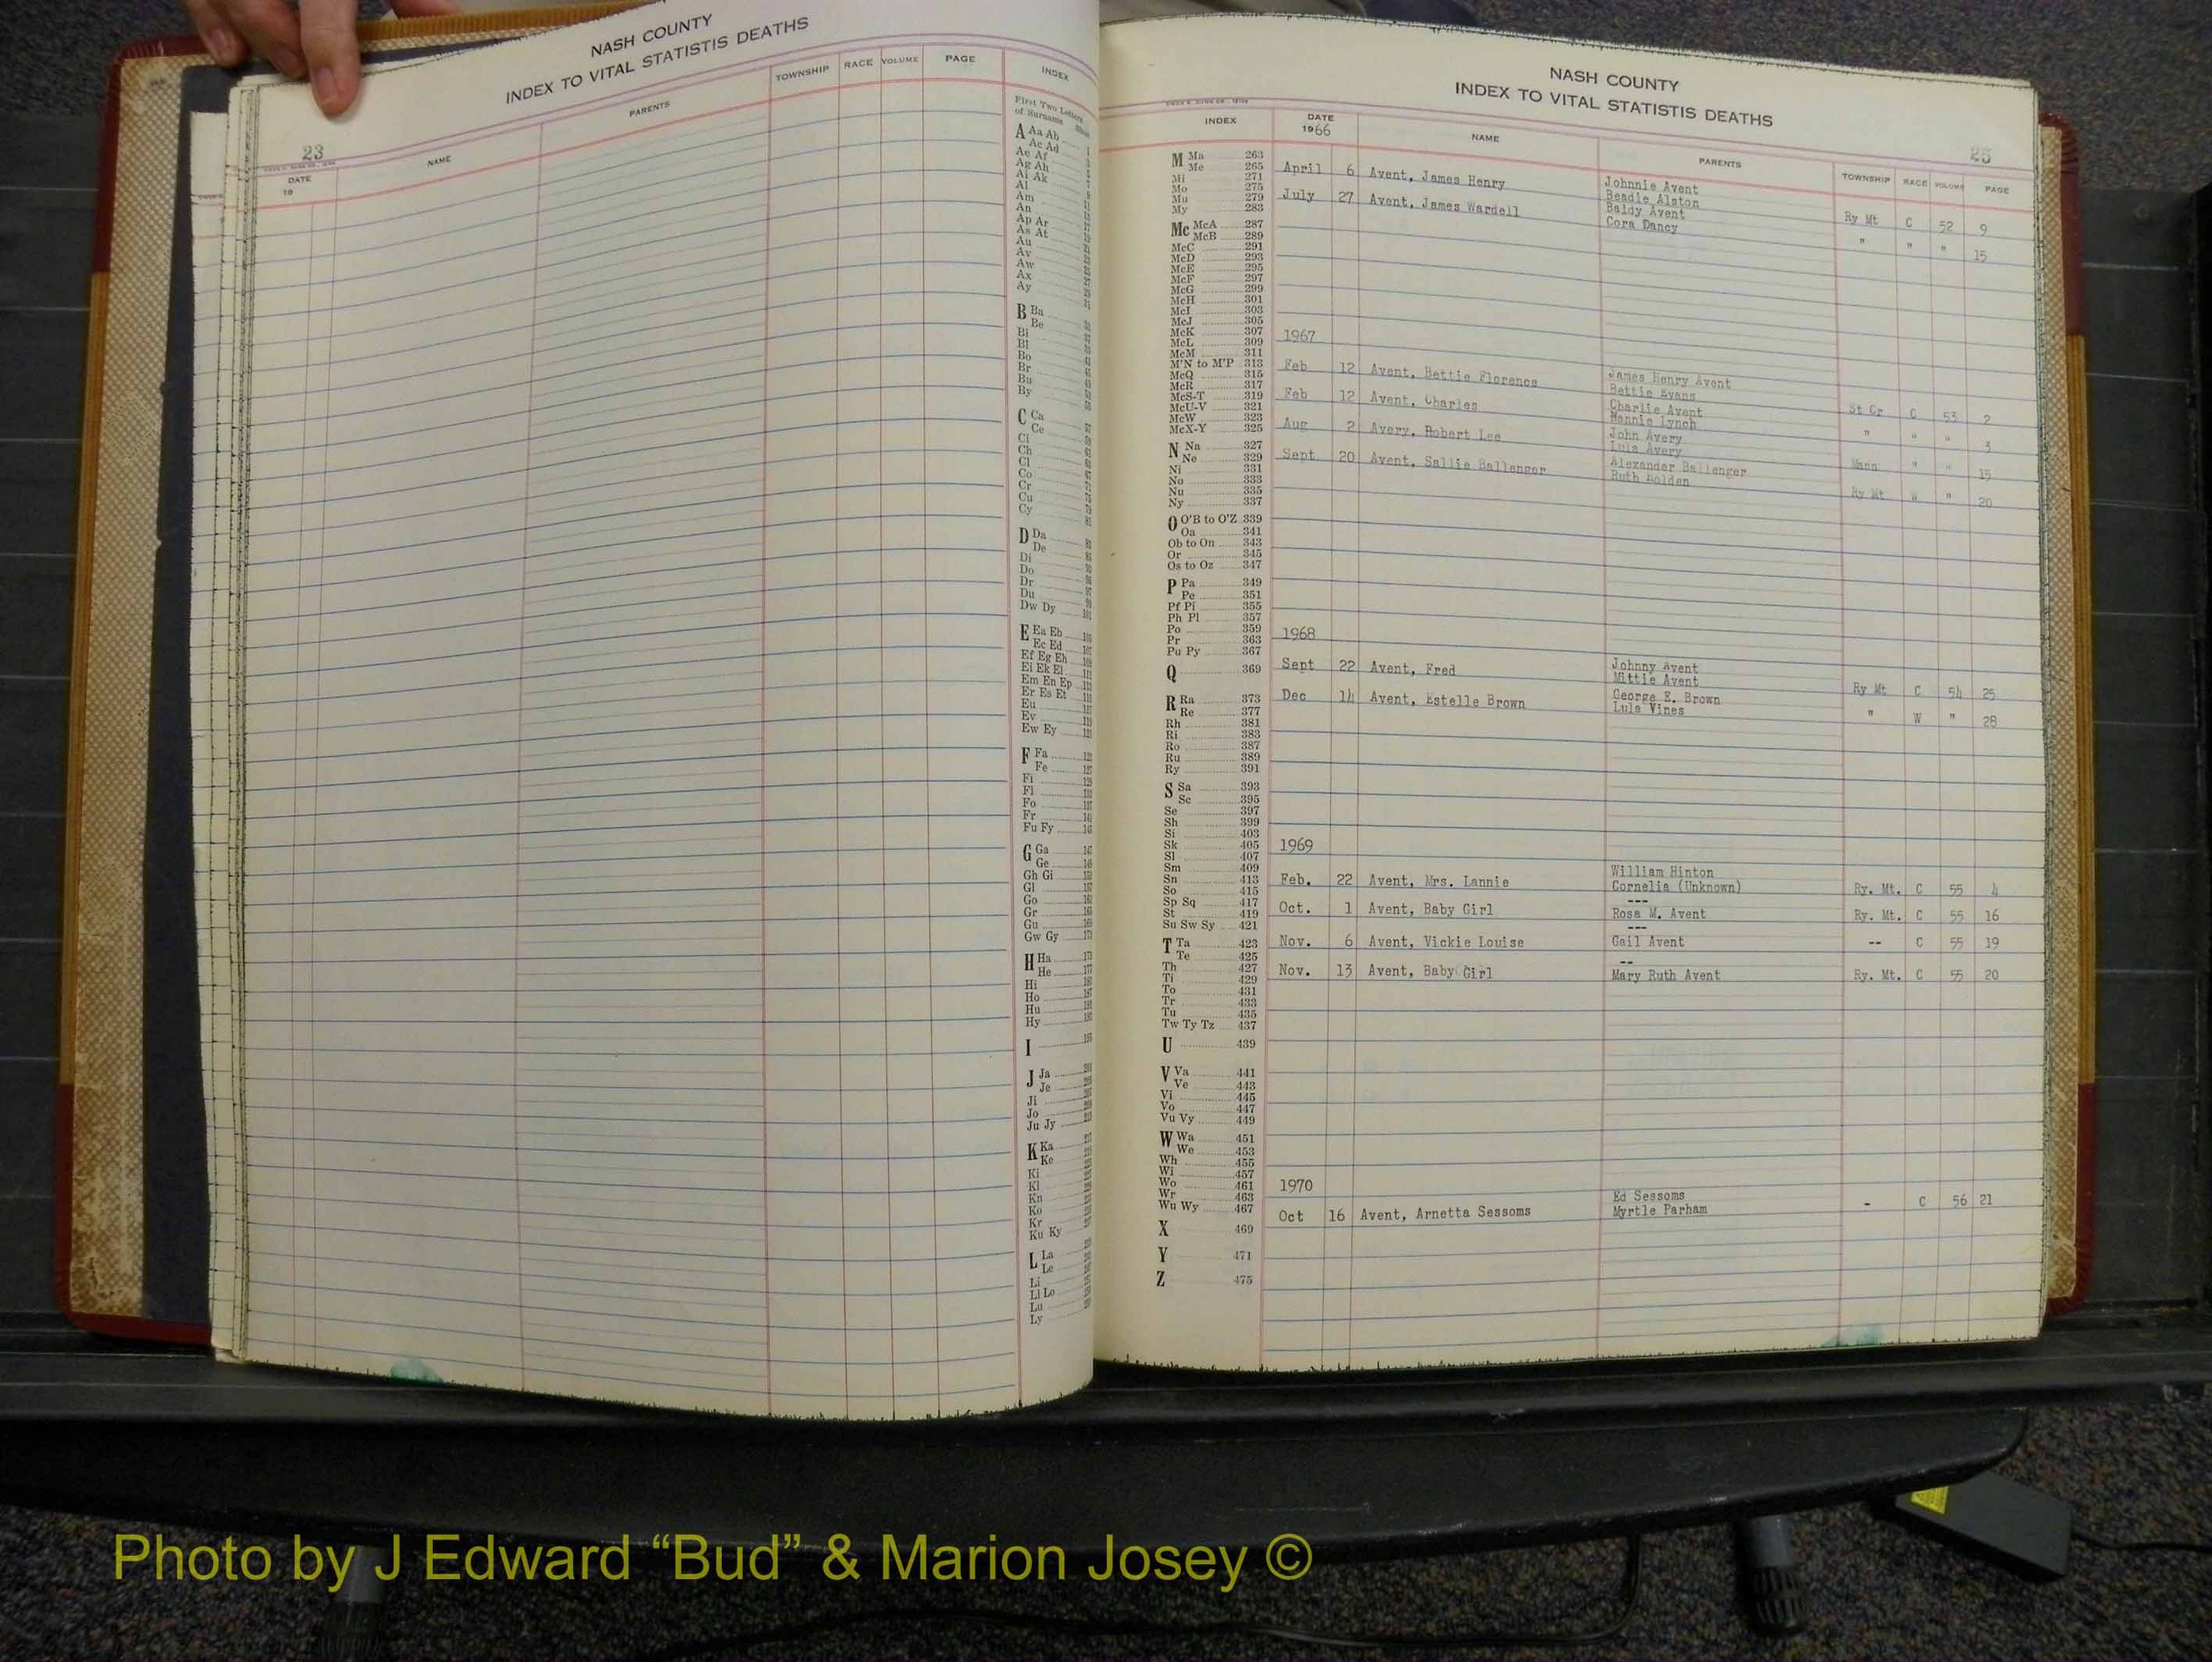 NASH COUNTY
INDEX TO VITAL STATISTIS DEATHS
23
DATE
19
NAME
PARENTS
TOWNSHIP RACE VOLUME PAGE
INDEX
First Two Letters
of Surname
A Aa Ab
Ac Ad
Ae Af
Ag Ah
Ai Ak
Al
Am
An
Ap Ar
As At
Au
Av
Aw
Ax
Ay
B Ba
Be
Bi
Bl
Bo
Br
Bu
By
C Ca
Ce
Ci
Ch
Cl
Co
Cr
Cu
Cy
D Da
De
Di
Do
Dr
Du
Dw Dy
E Ea Eb
Ec Ed
Ef Eg Eh
Ei Ek El
Em En Ep
Er Es Et
Eu
Ev
Ew Ey
F Fa
Fe
Fi
Fl
Fo
Fr
Fu Fy
G Ga
Ge
Gh Gi
Gl
Go
Gr
Gu
Gw Gy
H Ha
He
Hi
Ho
Hu
Hy
I
J Ja
Je
Ji
Jo
Ju Jy
K Ka
Ke
Ki
Kl
Kn
Ko
Kr
Ku Ky
L La
Le
Li
Ll Lo
Lu
Ly
NASH COUNTY
INDEX TO VITAL STATISTIS DEATHS
25
INDEX
M Ma 263
Me 265
Mi 271
Mo 275
Mu 279
My 283
Mc McA 287
McB 289
McC 291
McD 293
McE 295
McF 297
McG 299
McH 301
McI 303
McJ 305
McK 307
McL 309
McM 311
M'N to M'P 313
McQ 315
McR 317
McS-T 319
McU-V 321
McW 323
McX-Y 325
N Na 327
Ne 329
Ni 331
No 333
Nu 335
Ny 337
O O'B to O'Z 339
Oa 341
Ob to On 343
Or 345
Os to Oz 347
P Pa 349
Pe 351
Pf Pi 355
Ph Pl 357
Po 359
Pr 363
Pu Py 367
Q 369
R Ra 373
Re 377
Rh 381
Ri 383
Ro 387
Ru 389
Ry 391
S Sa 393
Sc 395
Se 397
Sh 399
Si 403
Sk 405
Sl 407
Sm 409
Sn 413
So 415
Sp Sq 417
St 419
Su Sw Sy 421
T Ta 423
Te 425
Th 427
Ti 429
To 431
Tr 433
Tu 435
Tw Ty Tz 437
U 439
V Va 441
Ve 443
Vi 445
Vo 447
Vu Vy 449
W Wa 451
We 453
Wh 455
Wi 457
Wo 461
Wr 463
Wu Wy 467
X 469
Y 471
Z 475
DATE
1966
NAME
PARENTS
TOWNSHIP RACE VOLUME PAGE
April 6 Avent, James Henry Johnnie Avent
Beadie Alston Ry Mt C 52 9
July 27 Avent, James Wardell Baldy Avent
Cora Dancy " " " 15
1967
Feb 12 Avent, Bettie Florence James Henry Avent
Bettie Evans St Cr C 53 2
Feb 12 Avent, Charles Charlie Avent
Nannie Lynch " " " 3
Aug 2 Avery, Robert Lee John Avery
Lula Avery Mann " " 15
Sept 20 Avent, Sallie Ballenger Alexander Ballenger
Ruth Bolden Ry Mt W " 20
1968
Sept 22 Avent, Fred Johnny Avent
Mittie Avent Ry Mt C 54 25
Dec 14 Avent, Estelle Brown George E. Brown
Lula Vines " W " 28
1969
William Hinton
Feb. 22 Avent, Mrs. Lannie Cornelia (Unknown) Ry. Mt. C 55 4
---
Oct. 1 Avent, Baby Girl Rosa M. Avent Ry. Mt. C 55 16
---
Nov. 6 Avent, Vickie Louise Gail Avent -- C 55 19
--
Nov. 13 Avent, Baby Girl Mary Ruth Avent Ry. Mt. C 55 20
1970
Ed Sessoms
Oct 16 Avent, Arnetta Sessoms Myrtle Parham - C 56 21
Photo by J Edward “Bud” & Marion Josey ©